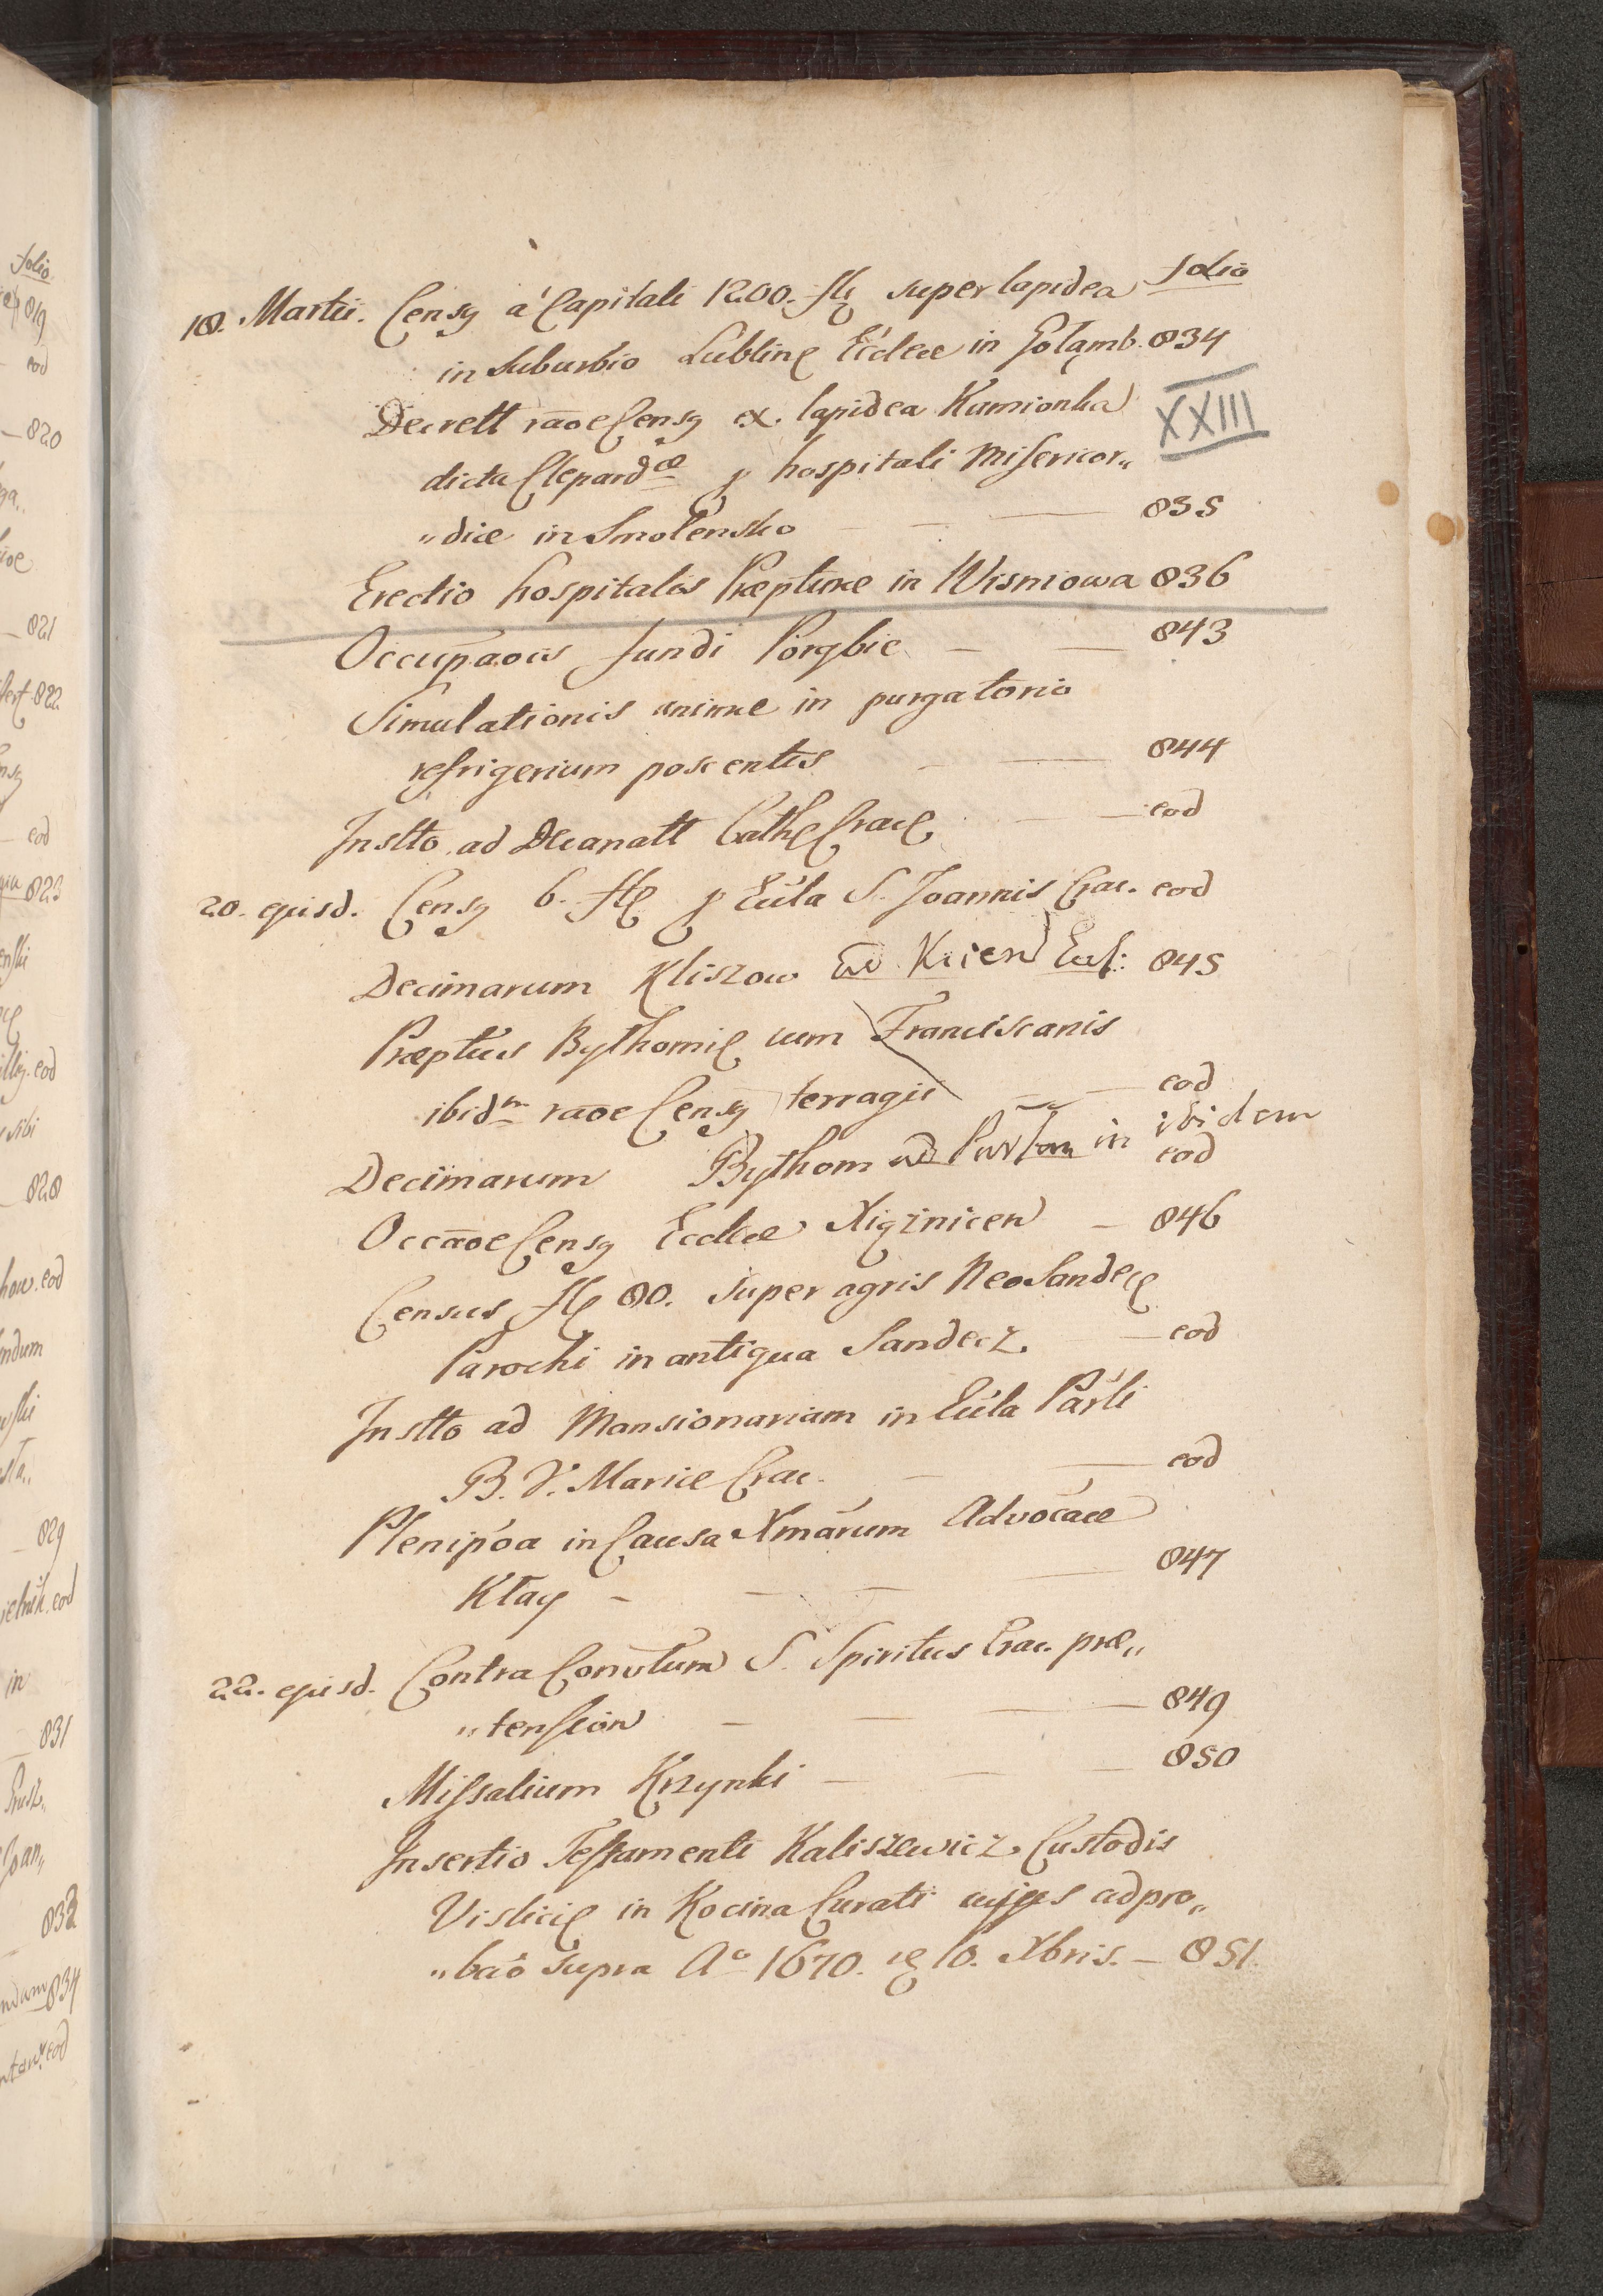 folio
18. Martii. Censq a Capitali 1200. fl super lapidea
in suburbio Lubline Eccleae in Gołąmb. 834
Decrett raoe Censq ex lapidea Kamionka
XXIII
dicta Clepardae p hospitali Misericor„
„diæ in Smolensko 835
Erectio hospitalis Præpturæ in Wisniowa 836
Occupaōis fundi Porębie 843
Simulationis animæ in purgatorio
refrigerium poscentis 844
Instto ad Decanatt Cath Crac eod
20. ejusd. Censq 6. fl p Eccla S. Joannis Crac. eod
Decimarum Kliszow Eccl: 845
Præptus Bythomi cum Franciscanis
ibidm raōe Censq terragii eod
Decimarum Bythom in ibidem
eod
Occaōe Censq Eccleæ Xiąznicen 846
Census fl 80. super agris NeoSandec
Parochi in antiqua Sandecz. eod
Instto ad Mansionariam in Eccla Parli
B. V. Mariæ Crac. eod
Plenipōa in Causa Xmārum Advocaæ
Kłay 847
22. ejusd. Contra Convtum S. Spiritus Crac. præ„
„tension 849
Missalium Krzynki 850
Insertio Testamenti Kaliszewicz Custodis
Vislici in Kocina Curati cujus adpro„
„baō supra Ao 1670. 10. Xbris. 851.
folio
819
eod
820
821
822
eod
823
eod
828
eod
829
eod
in
831
833
834
eod